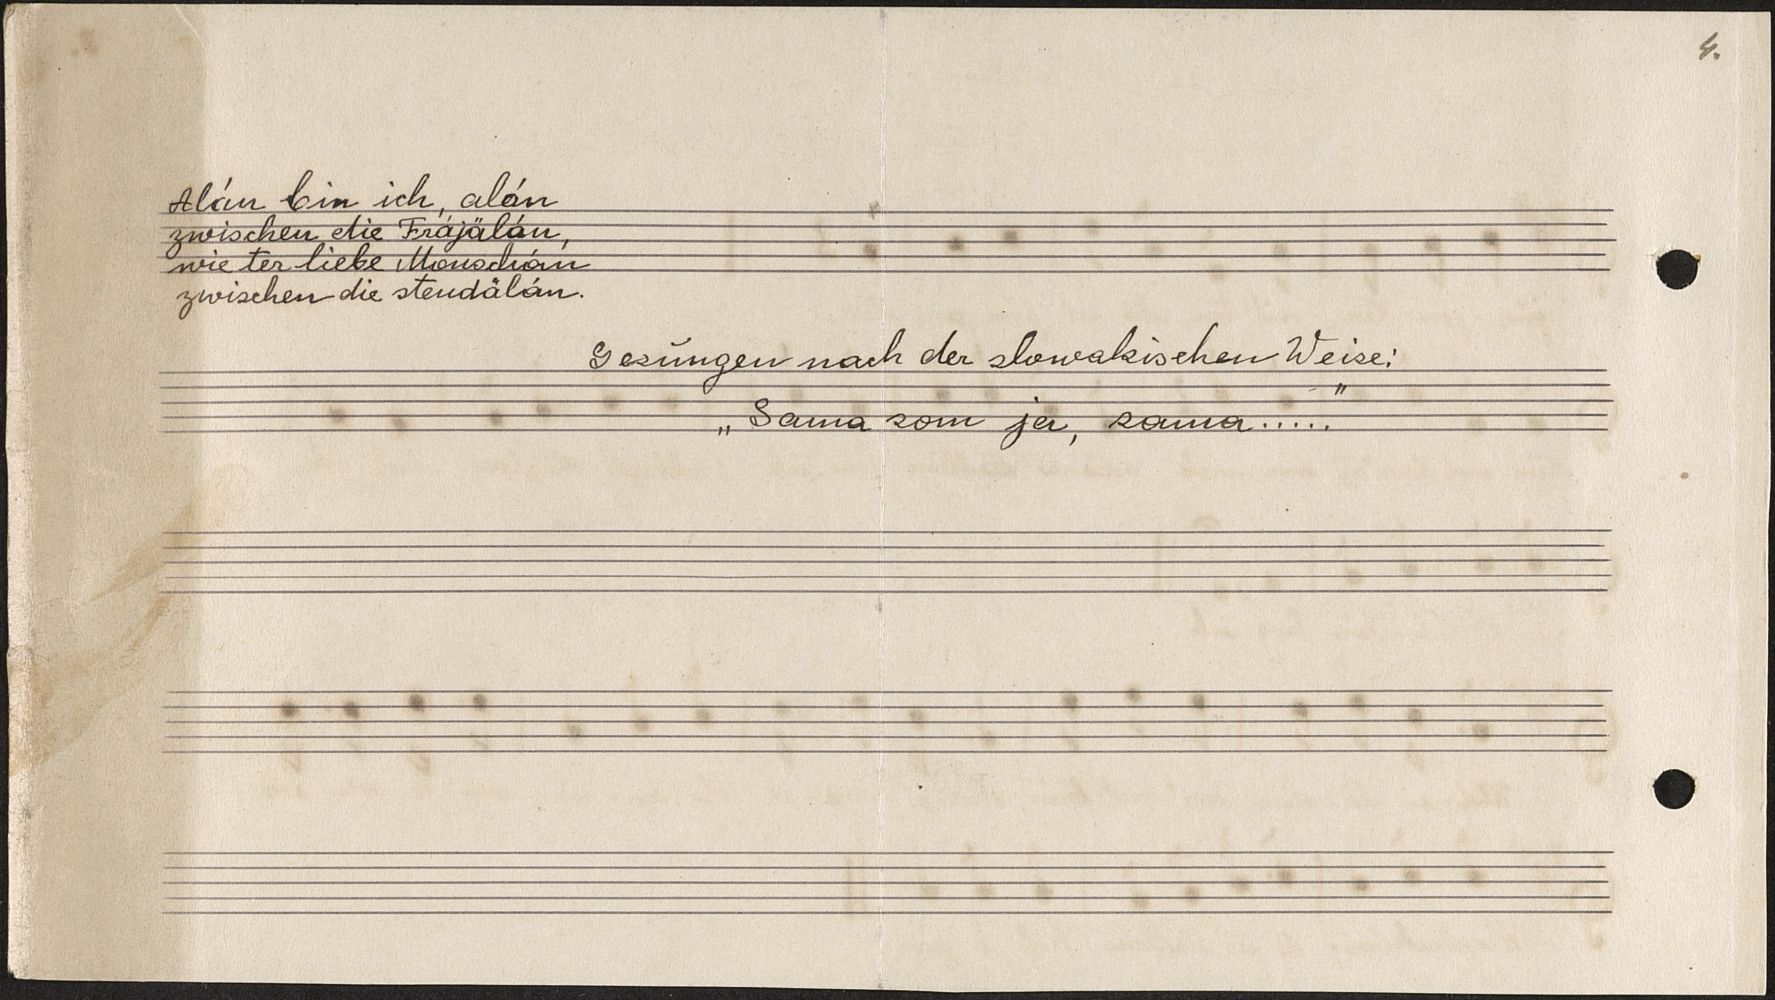 4.
Alán bin ich, alán
zwischen die Frájälán,
wie ter liebe Monschán
zwischen die stendälán.
Gesungen nach der slowakischen Weise:
„Sama som ja, sama....."